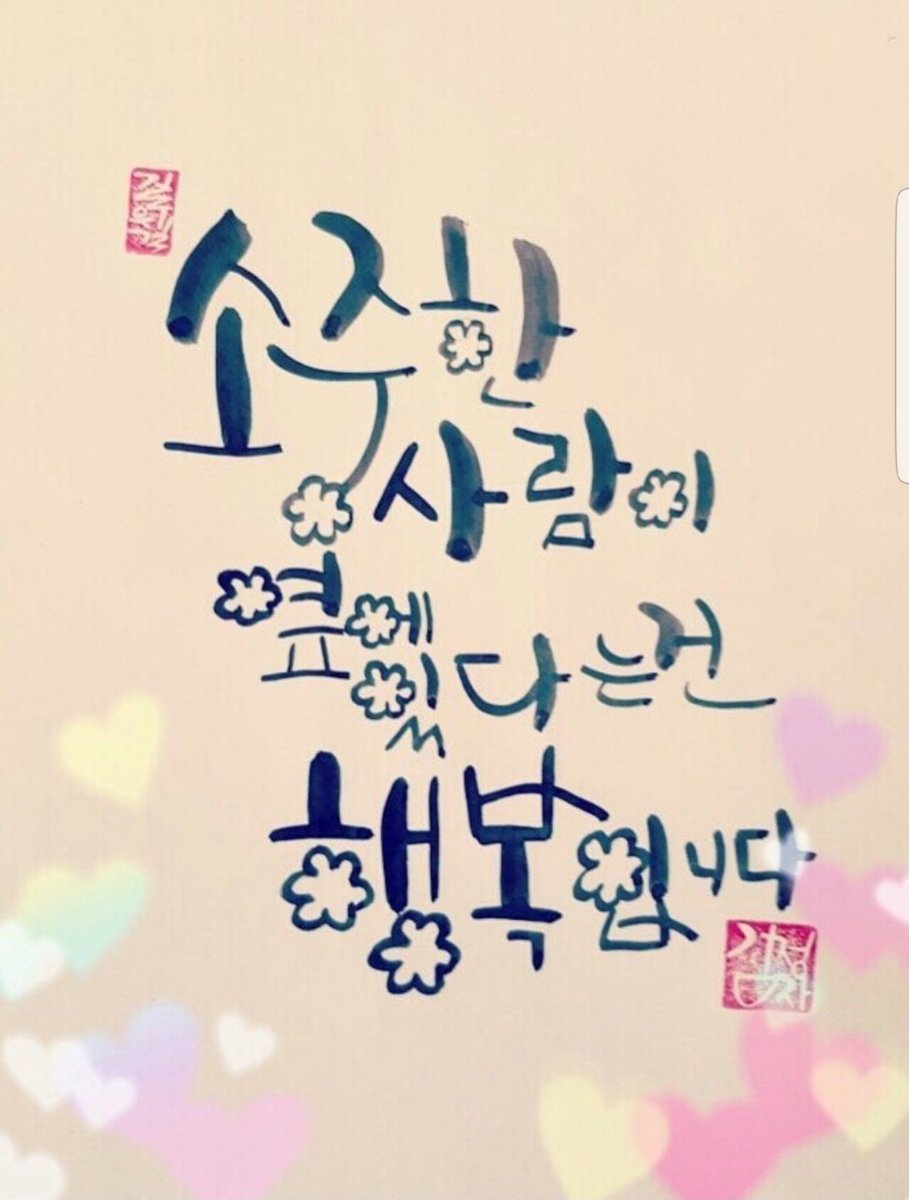 소중한
사람이
옆에
있다는건
행복입니다